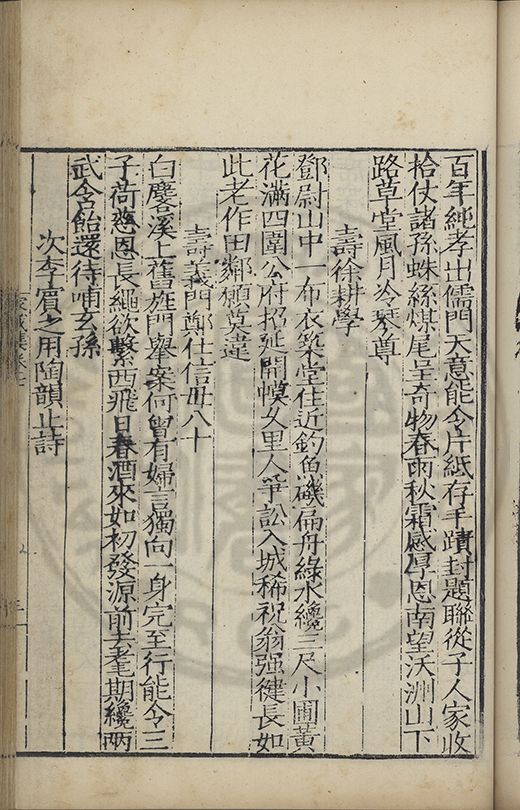 百年純孝出儒門天意能令片紙存手蹟封題聯從子人家收
拾仗諸孫蛛絲煤尾呈奇物春雨秋霜感厚恩南望沃洲山下
路草堂風月冷琴尊
壽徐耕學
鄧尉山中一布衣築堂住近釣魚磯扁舟綠水纔三尺小圃黃
花滿四圍公府招延開幙久里人爭訟入城稀祝翁强健長如
此老作田鄰願莫違
壽義門鄭仕信卅八十
白麐溪上舊旌門舉案何曾有婦言獨向一身完至行能令三
子荷慈恩長繩欲繫西飛日春酒來如初發源前去耄期纔兩
武含飴還待哺玄孫
次李賔之用陶韻止詩